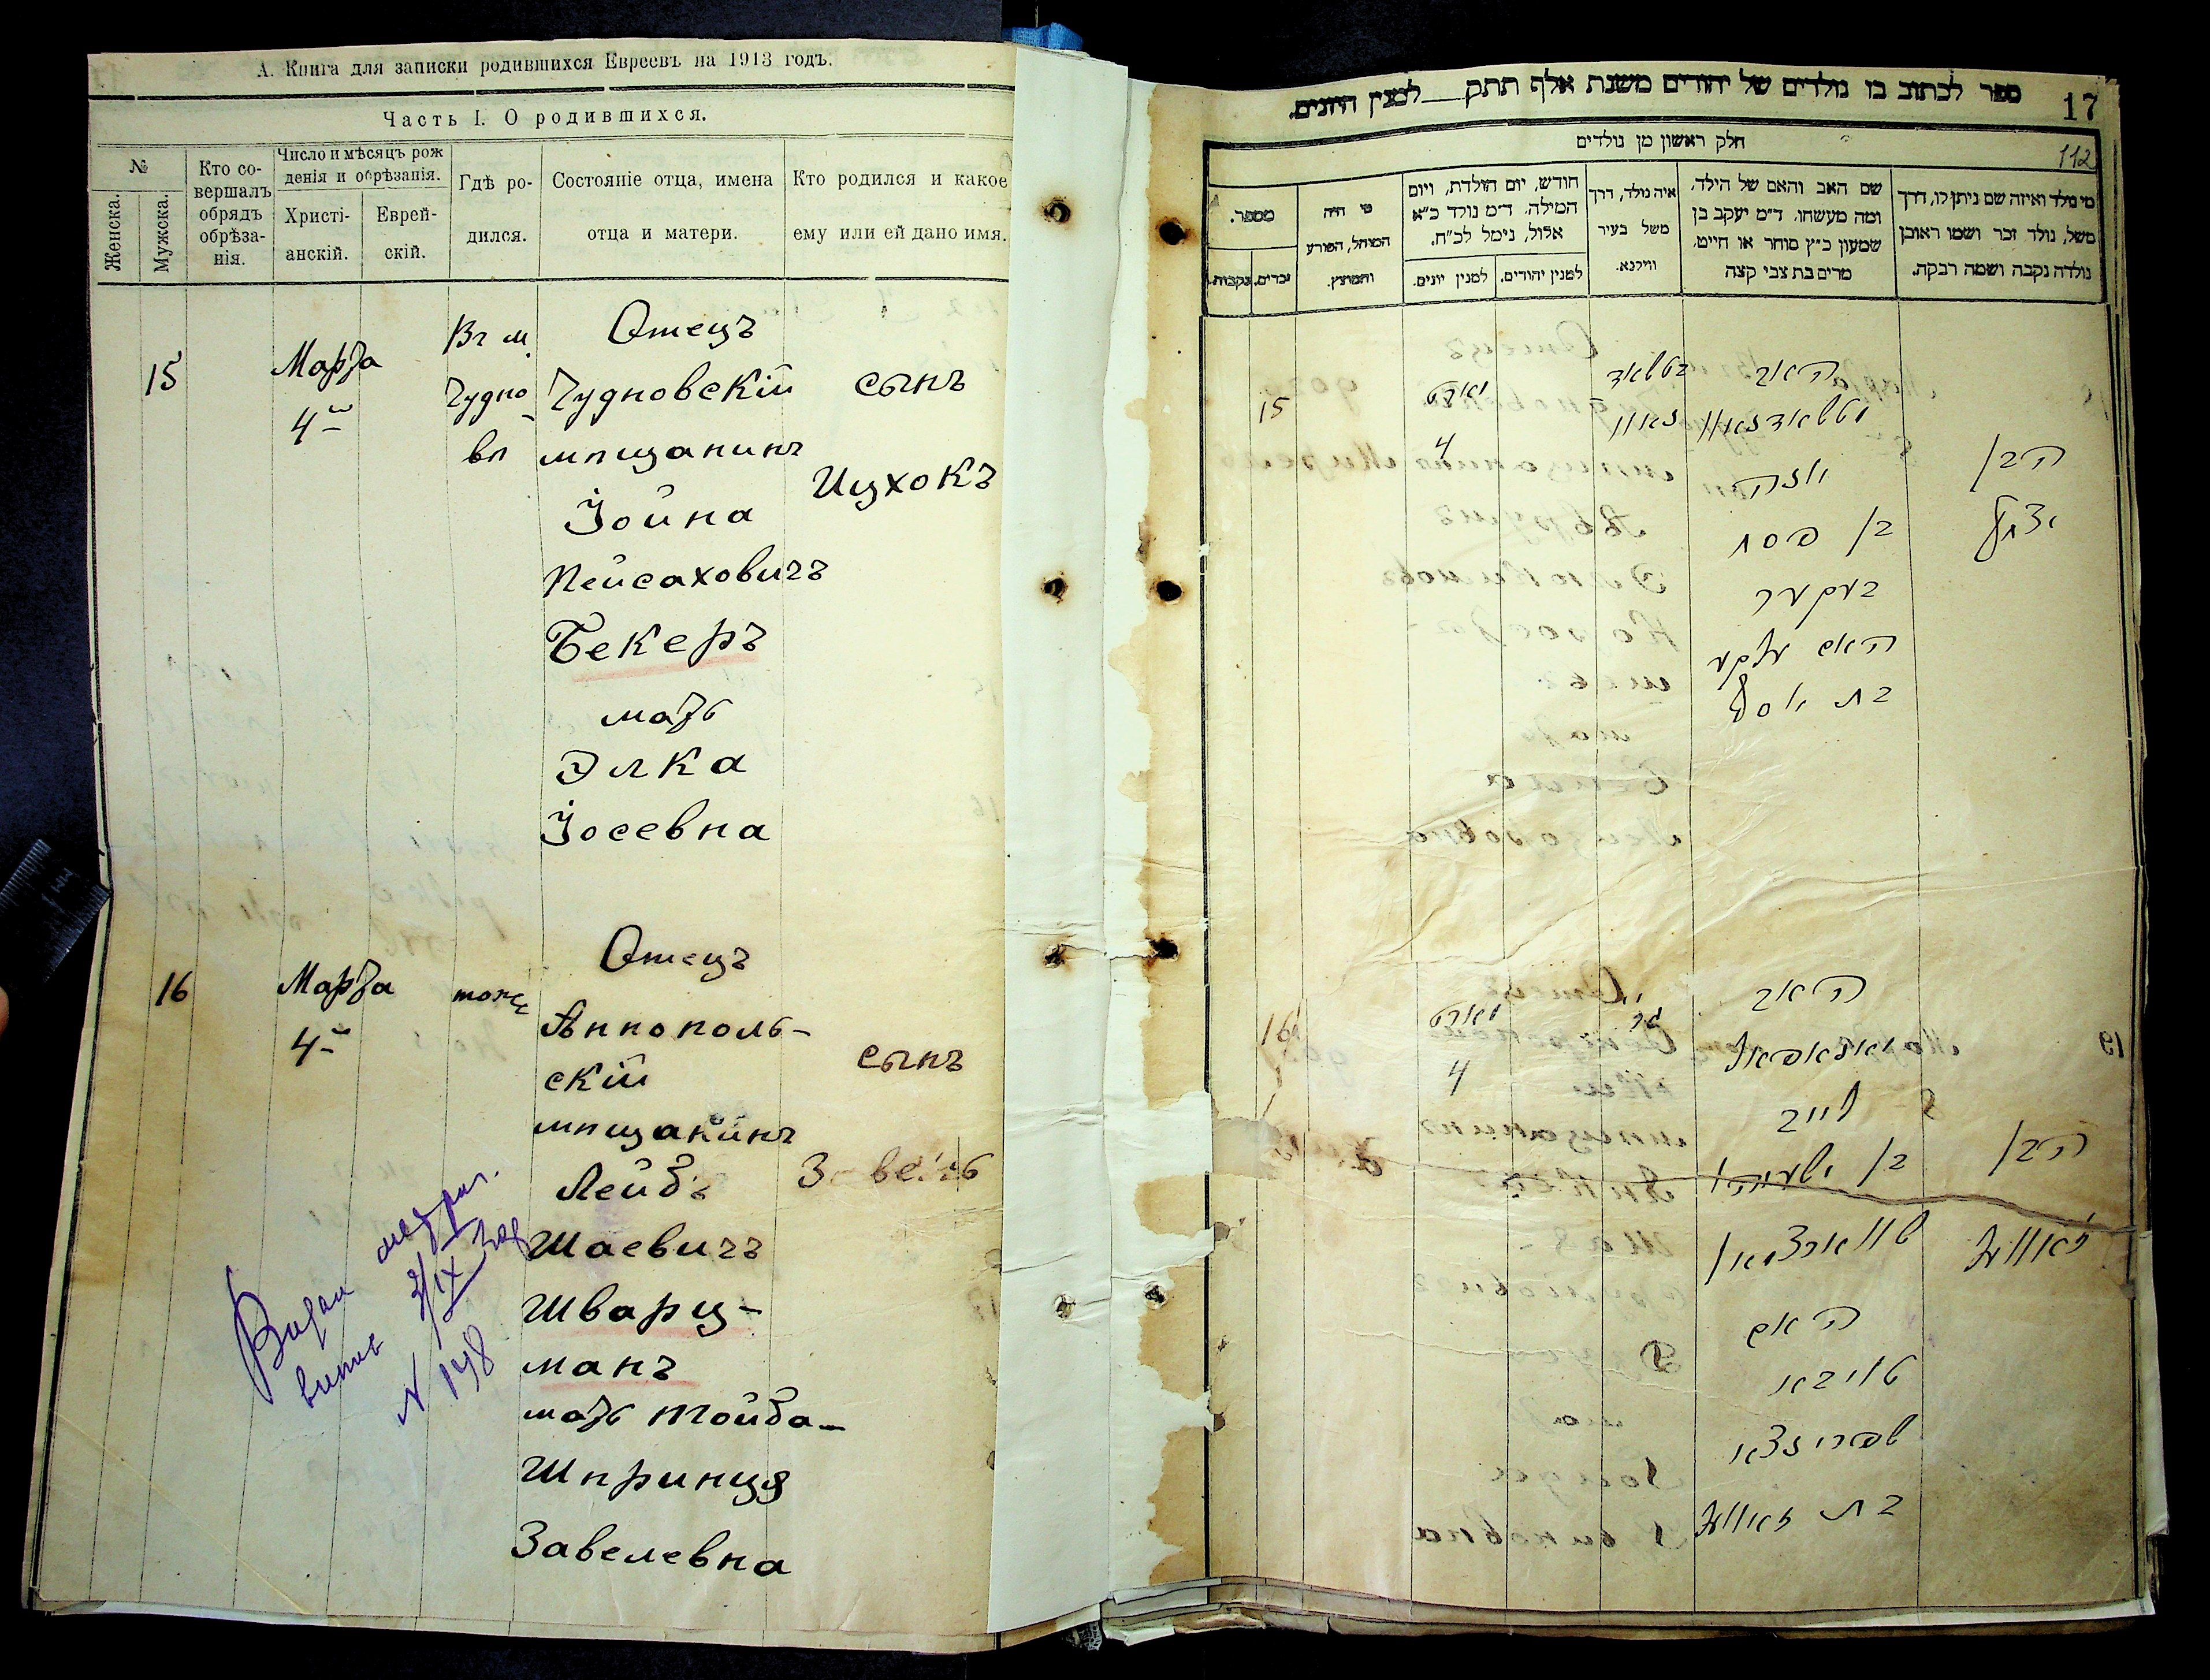 А. Книга для записки родившихся Евреевъ на 1913 годъ.
Часть I. О родившихся.
№
Женска.
Мужска.
Кто со-
вершалъ
обрядъ
обрѣза-
нія.
Число и мѣсяцъ рож
денія и обрѣзанія.
Христі-
анскій.
Еврей-
скій.
Гдѣ ро-
дился.
Состояніе отца, имена
отца и матери.
Кто родился и какое
ему или ей дано имя.
15
Марта
4
Въ м.
Чудно
вѣ
Отецъ
Чудновскій
мѣщанинъ
Іойна
Пейсаховичъ
Бекеръ
мать
Элка
Іосевна
сынъ
Ицхокъ
16
Марта
4
тоже
Отецъ
Аннополь-
скій
мѣщанинъ
Лейбъ
Шаевичъ
Шварц-
манъ
мать Тойба-
Шпринця
Завелевна
сынъ
N 148
ספר לכתוב בו נולדים של יהודים משנת אלף תתק למנין היונים.
17
112
חלק ראשון מן נולדים
מי נולד ואיזה שם ניתן לו, דרך
משל, נולד זכר ושמו ראובן
נולדה נקבה ושמה רבקה.
שם האב והאם של הילד,
ומה מעשהו, ד״מ יעקב בן
שמעון כ״ץ סוחר או חייט,
מרים בת צבי קצה
איה נולד, דרך
משל בעיר
ווילנא.
חודש, יום הולדת, ויום
המילה, ד״מ נולד כ״א
אלול, נימל לכ״ח.
למנין יהודים.
למנין יונים.
מי היה
המוהל, הפורע
והמוצץ.
מספר.
זכרים.
נקבות.
15
מארט
4
האב
יונה
בן פסח
בעקער
האם עלקע
בת יוסף
הבן
יצחק
16
מארט
4
האב
לייב
בן ישעיהו
שווארצמאן
האם
טויבא
שפרינצא
בת זאוועל
הבן
זאוועל